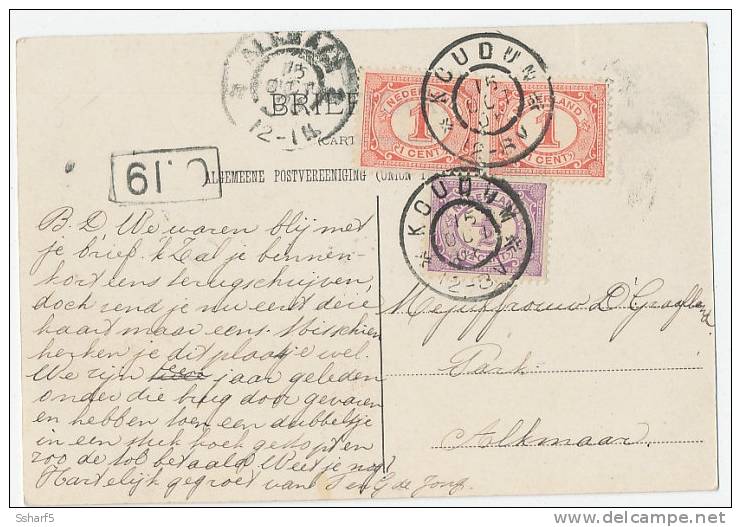 ALKMAAR
15
OCT
12-1N
KOUDUM
15
OCT
12-8V
BRIEF
(CART
ALGEMEENE POSTVEREENIGING (UNION
NEDERLAND
1
1 CENT
NEDERLAND
1
1 CENT
C.19
KOUDUM
15
OCT
12-8V
B.D. We waren blij met
je brief. 'k Zal je binnen-
kort eens terugschrijven,
doch zend je nu eerst deze
kaart maar eens. Misschien
herken je dit plaatje wel.
We zijn jaar geleden
onder die brug door gevaren
en hebben toen een dubbeltje
in een stuk koek gestopt en
zoo de tol betaald. Weet je nog?
Hartelijk gegroet van de Jong
Mejuffrouw D. Graafland
Park
Alkmaar.
Ssharf5
delcampe.net